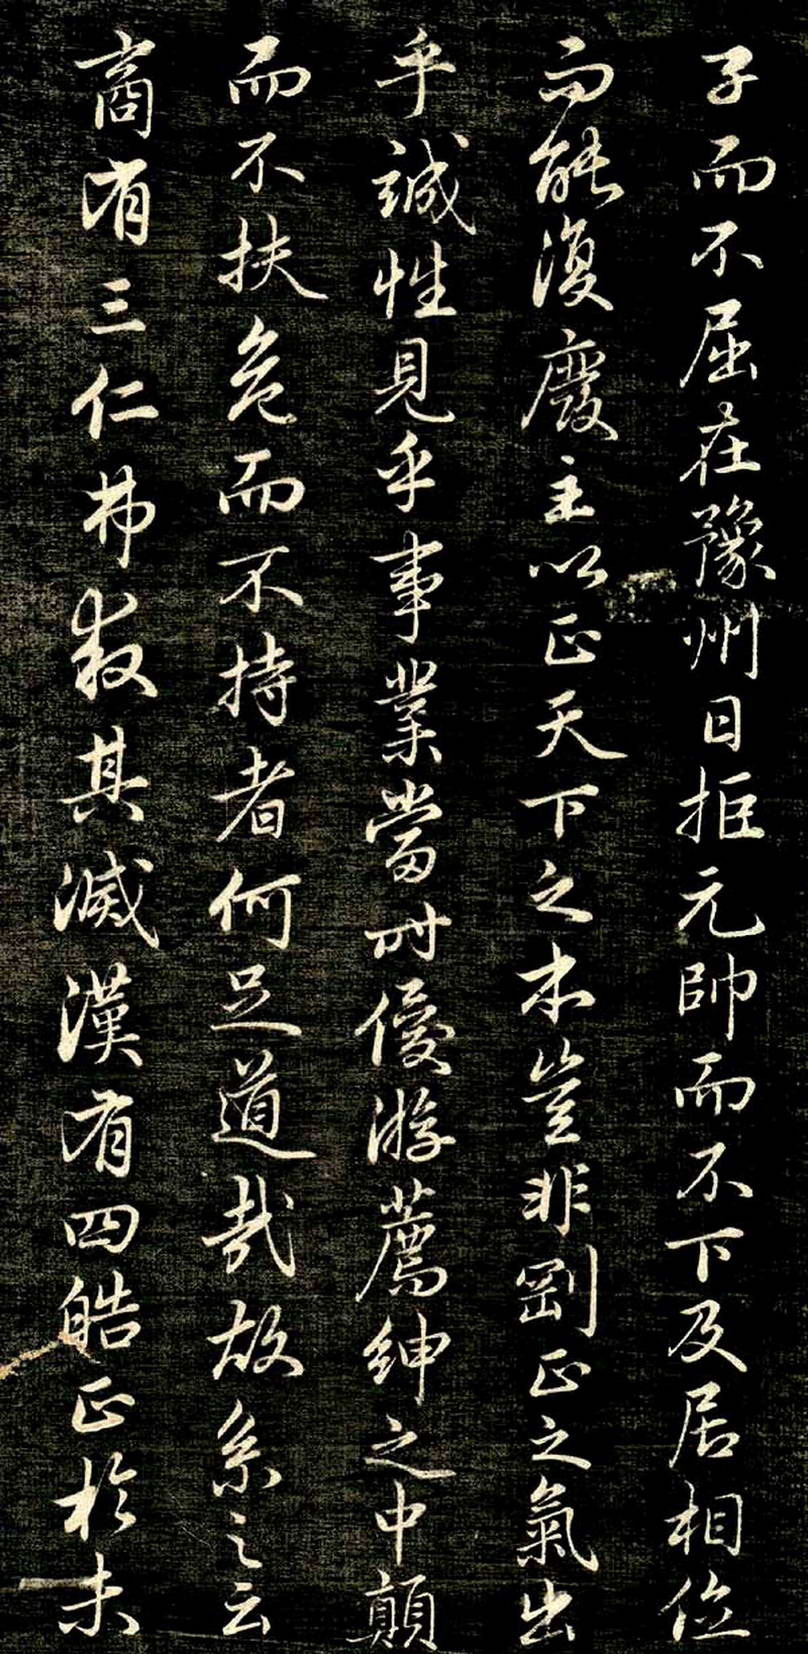 子而不屈在豫州日拒元帥而不下及居相位
而能復廢主以正天下之本豈非剛正之氣出
乎誠性見乎事業當時優游薦紳之中顛
而不扶危而不持者何足道哉故系之云
商有三仁弗救其滅漢有四皓正於未